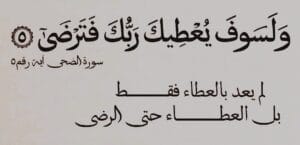 وَلَسَوفَ يُعْطِيكَ رَبُّكَ فَتَرْضَىٰ ۝٥
سورة الضحى آية رقم ٥
لم يعد بالعطاء فقط
بل العطاء حتى الرضى